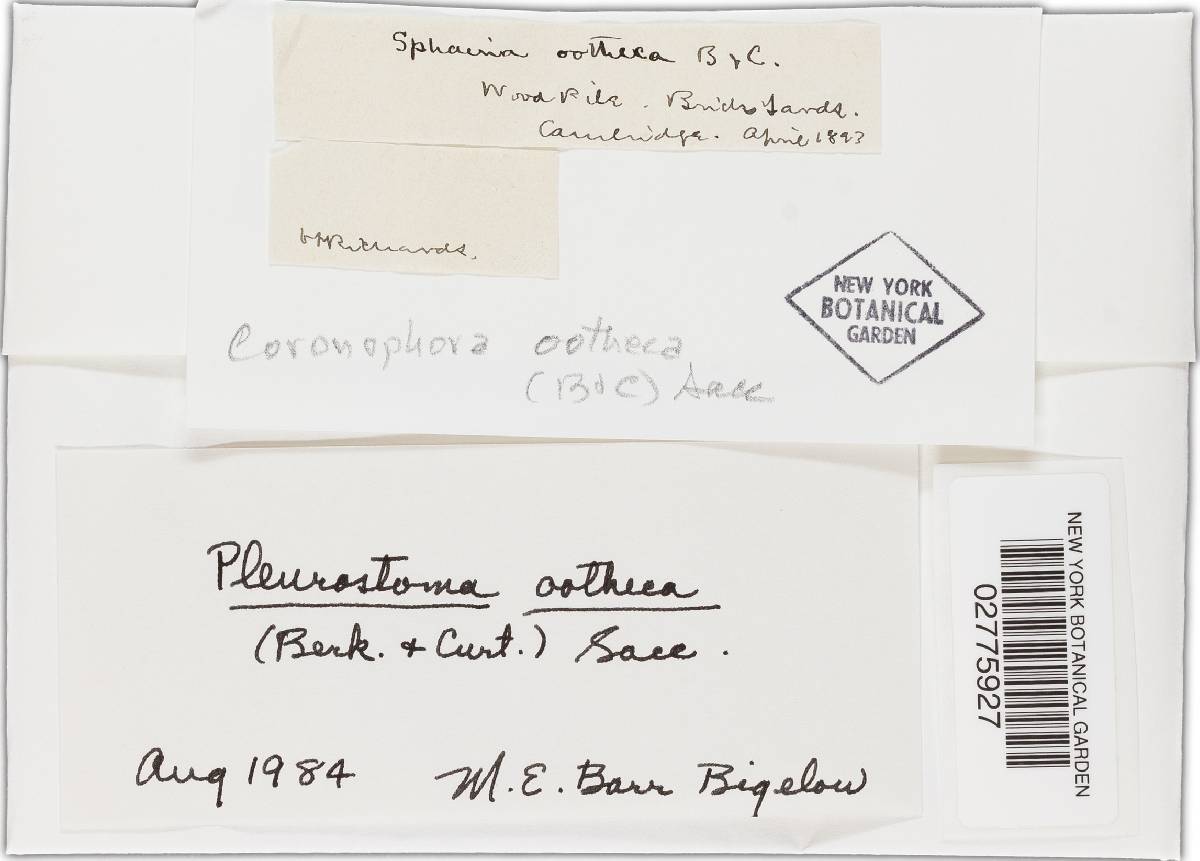 Sphaeria ootheca B & C.
Wood Pile. Brick Yards.
Cambridge. April 1893
HMRichards.
NEW YORK
BOTANICAL
GARDEN
Coronophora ootheca
(B & C) Sacc
Pleurostoma ootheca
(Berk. + Curt.) Sacc.
Aug 1984 M. E. Barr Bigelow
NEW YORK BOTANICAL GARDEN
02775927